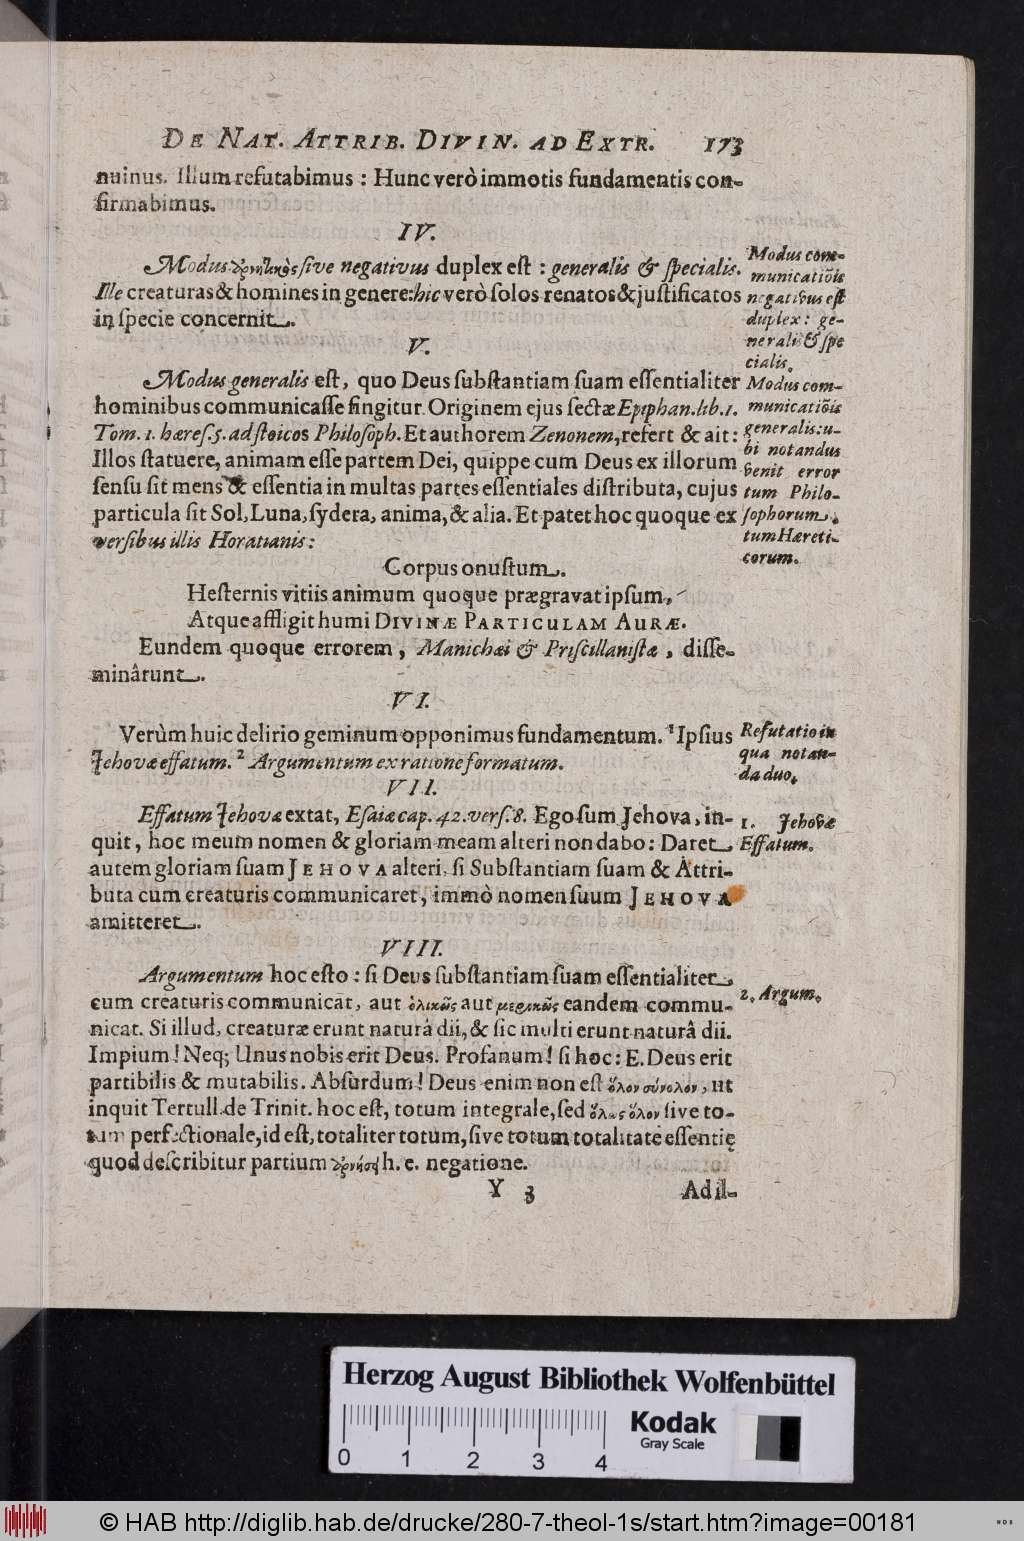 DE NAT. ATTRIB. DIVIN. AD EXTR. 173
nuinus. Illum refutabimus : Hunc verò immotis fundamentis con-
firmabimus.
IV.
Modus ἀρνητικὸς sive negativus duplex est : generalis & specialis.
Ille creaturas & homines in genere: hic verò solos renatos & justificatos
in specie concernit.
Modus com-
municatiōis
negativus est
duplex: ge-
neralis & spe
cialis.
V.
Modus generalis est, quo Deus substantiam suam essentialiter
hominibus communicasse fingitur. Originem ejus sectæ Epiphan. lib. 1.
Tom. 1. hæres. 5. ad stoicos Philosoph. Et authorem Zenonem, refert & ait:
Illos statuere, animam esse partem Dei, quippe cum Deus ex illorum
sensu sit mens & essentia in multas partes essentiales distributa, cujus
particula sit Sol, Luna, sydera, anima, & alia. Et patet hoc quoque ex
versibus illis Horatianis:
Modus com-
municatiōis
generalis: u-
bi notandus
venit error
tum Philo-
sophorum,
tum Hæreti-
corum.
Corpus onustum.
Hesternis vitiis animum quoque prægravat ipsum,
Atque affligit humi DIVINÆ PARTICULAM AURÆ.
Eundem quoque errorem, Manichæi & Priscillanistæ, disse-
minârunt.
VI.
Verùm huic delirio geminum opponimus fundamentum. 1 Ipsius
Jehovæ effatum. 2 Argumentum ex ratione formatum.
Refutatio in
qua notan-
da duo.
VII.
Effatum Jehovæ extat, Esaiæ cap. 42. vers. 8. Ego sum Jehova, in-
quit, hoc meum nomen & gloriam meam alteri non dabo: Daret
autem gloriam suam JEHOVA alteri, si Substantiam suam & Attri-
buta cum creaturis communicaret, immò nomen suum JEHOVA
amitteret.
1. Jehovæ
Effatum.
VIII.
Argumentum hoc esto : si Deus substantiam suam essentialiter
cum creaturis communicat, aut ὁλικῶς aut μερικῶς eandem commu-
nicat. Si illud, creaturæ erunt naturâ dii, & sic multi erunt naturâ dii.
Impium! Neq; Unus nobis erit Deus. Profanum! si hoc: E. Deus erit
partibilis & mutabilis. Absurdum! Deus enim non est ὅλον σύνολον, ut
inquit Tertull. de Trinit. hoc est, totum integrale, sed ὅλως ὅλον sive to-
tum perfectionale, id est, totaliter totum, sive totum totalitate essentię
quod describitur partium ἀρνήσῃ h. e. negatione.
2. Argum.
Y 3 Ad il-
Herzog August Bibliothek Wolfenbüttel
Kodak
Gray Scale
0 1 2 3 4
© HAB http://diglib.hab.de/drucke/280-7-theol-1s/start.htm?image=00181